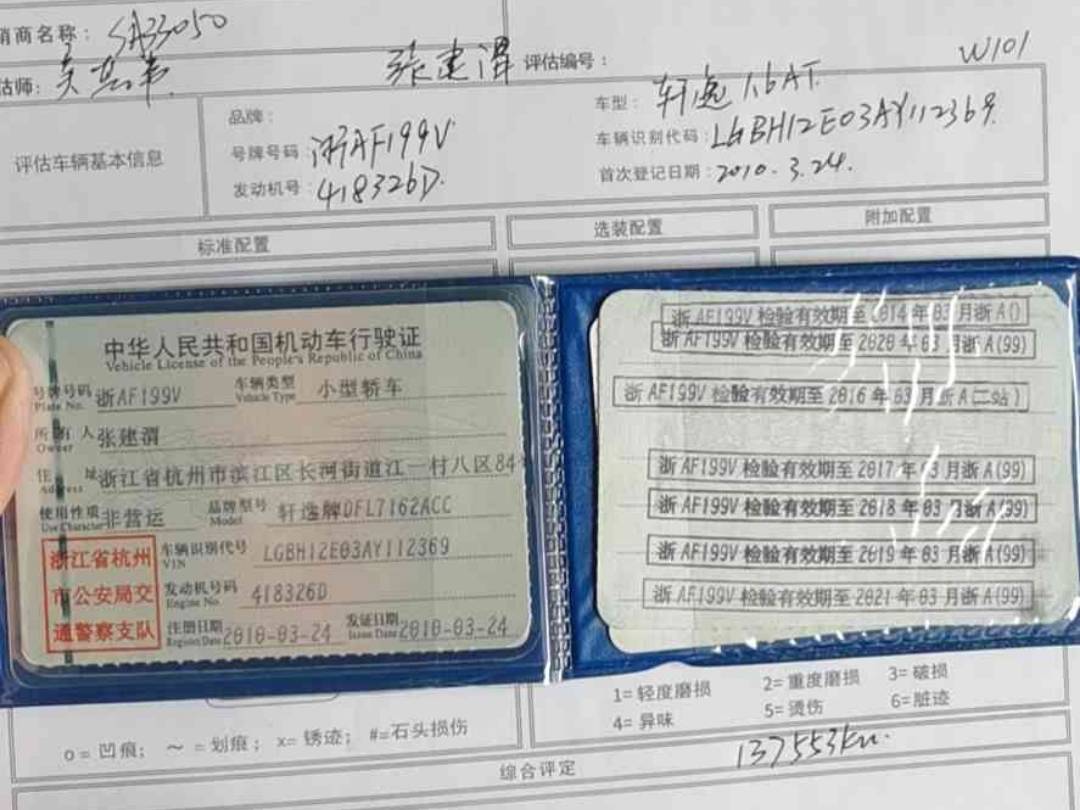 销商名称： SA33050
估师： 张建渭 评估编号： W101
评估车辆基本信息
品牌： 车型： 轩逸 1.6AT
号牌号码： 浙AF199V 车辆识别代码： LGBH12E03AY112369
发动机号： 418326D 首次登记日期： 2010.3.24.
标准配置 选装配置 附加配置
中华人民共和国机动车行驶证
Vehicle License of the People's Republic of China
号牌号码 浙AF199V 车辆类型 小型轿车
Plate No. Vehicle Type
所有人 张建渭
Owner
住址 浙江省杭州市滨江区长河街道江一村八区84
Address
使用性质 非营运 品牌型号 轩逸牌DFL7162ACC
Use Character Model
浙江省杭州市公安局交通警察支队
车辆识别代号 LGBH12E03AY112369
VIN
发动机号码 418326D
Engine No.
注册日期 2010-03-24 发证日期 2010-03-24
Register Date Issue Date
浙AF199V 检验有效期至 2014年03月浙A()
浙AF199V 检验有效期至 2020年03月浙A(99)
浙AF199V 检验有效期至 2016年03月浙A(二站)
浙AF199V 检验有效期至 2017年03月浙A(99)
浙AF199V 检验有效期至 2018年03月浙A(99)
浙AF199V 检验有效期至 2019年03月浙A(99)
浙AF199V 检验有效期至 2021年03月浙A(99)
o= 凹痕； ～= 划痕； x= 锈迹； #=石头损伤
1= 轻度磨损 2= 重度磨损 3= 破损
4= 异味 5= 烫伤 6=脏迹
综合评定 137553km.